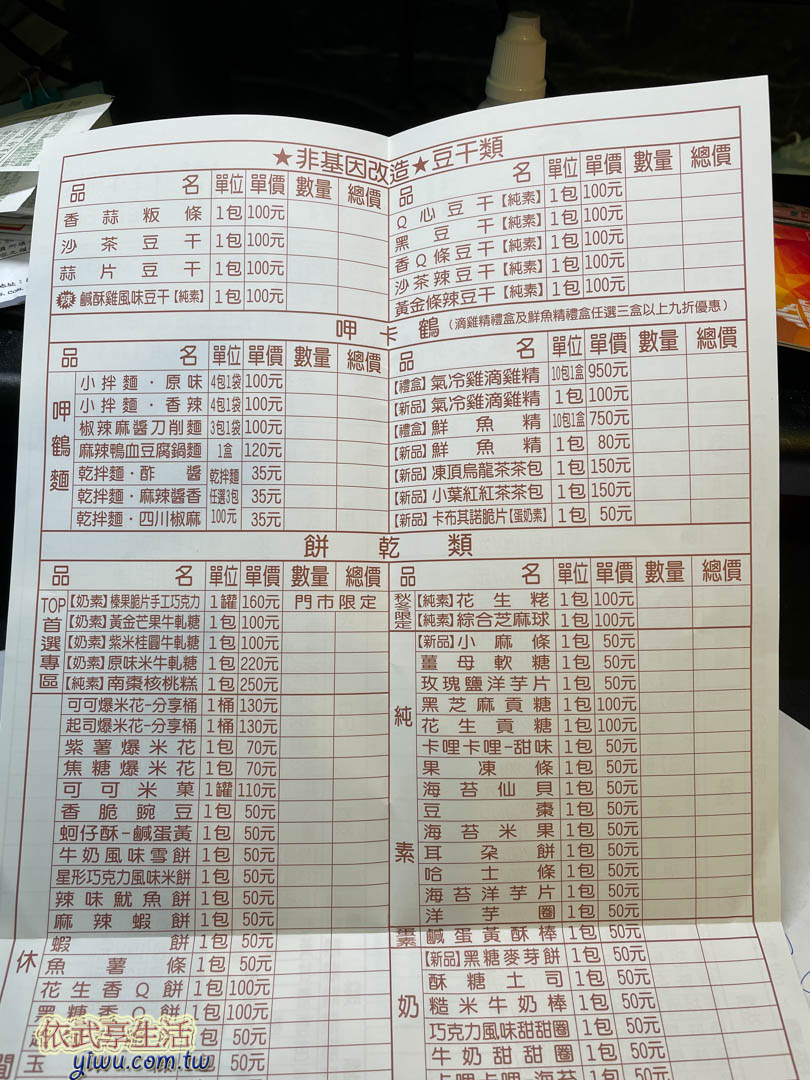 ★非基因改造★豆干類
品名 單位 單價 數量 總價
香蒜粄條 1包 100元
沙茶豆干 1包 100元
蒜片豆干 1包 100元
辣 鹹酥雞風味豆干【純素】 1包 100元
品名 單位 單價 數量 總價
Q心豆干【純素】 1包 100元
黑豆干【純素】 1包 100元
香Q條豆干【純素】 1包 100元
沙茶辣豆干【純素】 1包 100元
黃金條辣豆干【純素】 1包 100元
呷卡鶴(滴雞精禮盒及鮮魚精禮盒任選三盒以上九折優惠)
品名 單位 單價 數量 總價
呷鶴麵
小拌麵・原味 4包1袋 100元
小拌麵・香辣 4包1袋 100元
椒辣麻醬刀削麵 3包1袋 100元
麻辣鴨血豆腐鍋麵 1盒 120元
乾拌麵・酢醬 35元
乾拌麵・麻辣醬香 35元
乾拌麵・四川椒麻 35元
乾拌麵
任選3包
100元
品名 單位 單價 數量 總價
【禮盒】氣冷雞滴雞精 10包1盒 950元
【新品】氣冷雞滴雞精 1包 100元
【禮盒】鮮魚精 10包1盒 750元
【新品】鮮魚精 1包 80元
【新品】凍頂烏龍茶茶包 1包 150元
【新品】小葉紅紅茶茶包 1包 150元
【新品】卡布其諾脆片【蛋奶素】 1包 50元
餅乾類
品名 單位 單價 數量 總價
TOP首選專區
【奶素】榛果脆片手工巧克力 1罐 160元 門市限定
【奶素】黃金芒果牛軋糖 1包 100元
【奶素】紫米桂圓牛軋糖 1包 100元
【奶素】原味米牛軋糖 1包 220元
【純素】南棗核桃糕 1包 250元
可可爆米花-分享桶 1桶 130元
起司爆米花-分享桶 1桶 130元
紫薯爆米花 1包 70元
焦糖爆米花 1包 70元
可可米菓 1罐 110元
香脆豌豆 1包 50元
蚵仔酥-鹹蛋黃 1包 50元
牛奶風味雪餅 1包 50元
星形巧克力風味米餅 1包 50元
辣味魷魚餅 1包 50元
麻辣蝦餅 1包 50元
蝦餅 1包 50元
休
魚薯條 1包 50元
花生香Q餅 1包 100元
黑糖香Q餅 1包 100元
間
玉
品名 單位 單價 數量 總價
秋冬限定
【純素】花生粩 1包 100元
【純素】綜合芝麻球 1包 100元
純素
【新品】小麻條 1包 50元
薑母軟糖 1包 50元
玫瑰鹽洋芋片 1包 50元
黑芝麻貢糖 1包 100元
花生貢糖 1包 100元
卡哩卡哩-甜味 1包 50元
果凍條 1包 50元
海苔仙貝 1包 50元
豆棗 1包 50元
海苔米果 1包 50元
耳朵餅 1包 50元
哈士條 1包 50元
海苔洋芋片 1包 50元
洋芋圈 1包 50元
蛋素
鹹蛋黃酥棒 1包 50元
奶
【新品】黑糖麥芽餅 1包 50元
酥糖土司 1包 50元
糙米牛奶棒 1包 50元
巧克力風味甜甜圈 1包 50元
牛奶甜甜圈 1包 50元
卡哩卡哩-海苔 1包 50元
依武享生活
yiwu.com.tw